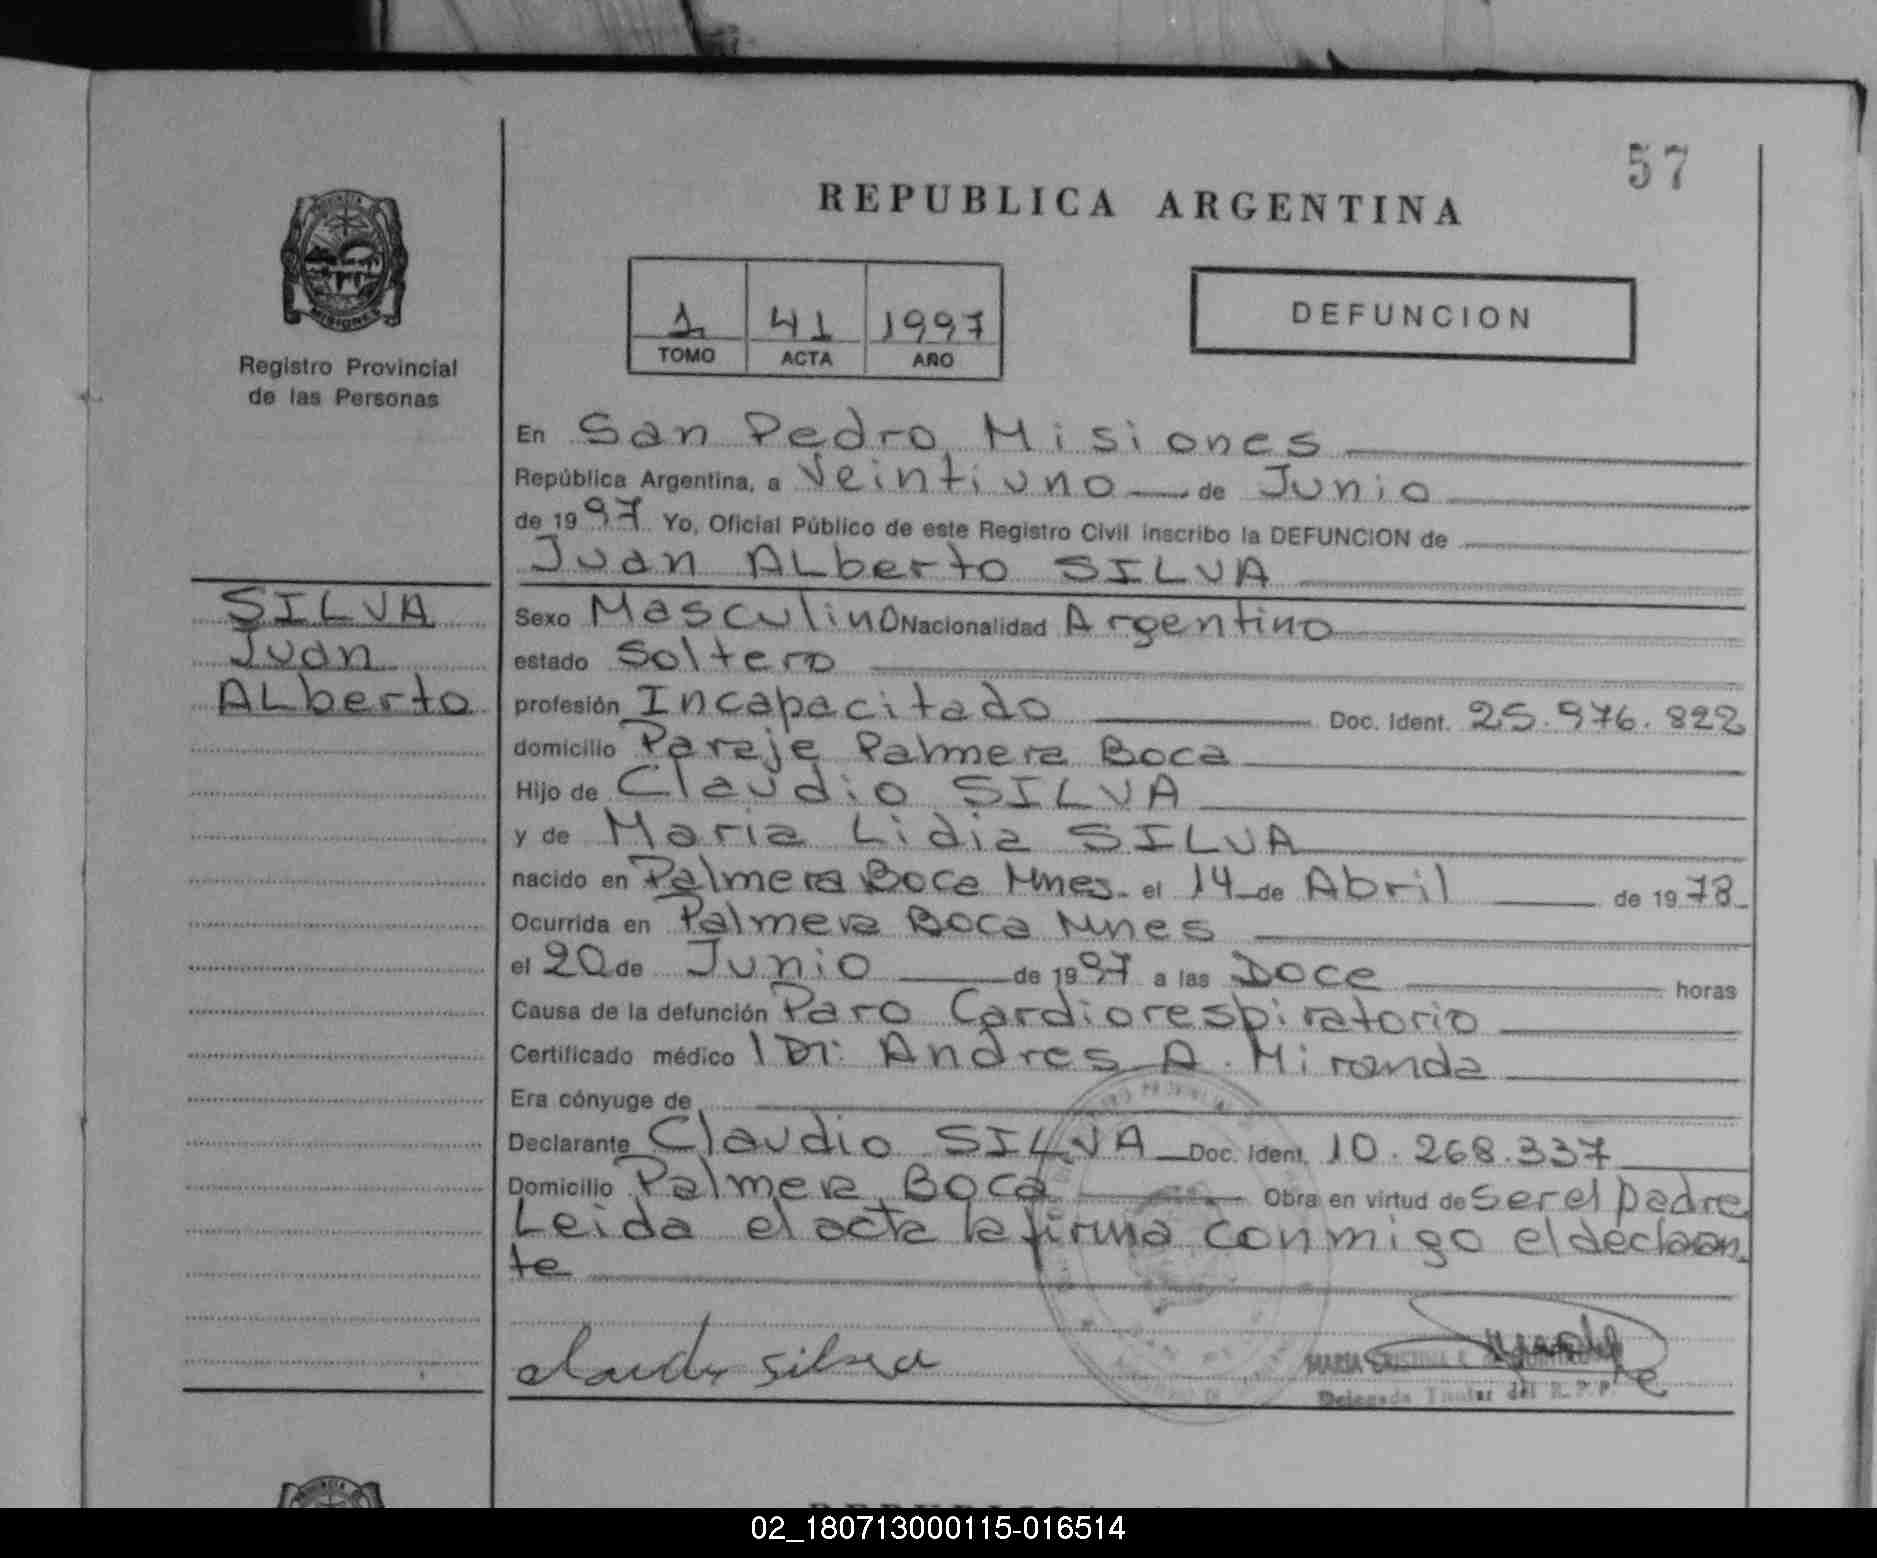 57
REPUBLICA ARGENTINA
PROVINCIA
MISIONES
Registro Provincial
de las Personas
1 41 1997
TOMO ACTA AÑO
DEFUNCION
En San Pedro, Misiones
República Argentina, a Veintiuno de Junio
de 1997 Yo, Oficial Público de este Registro Civil inscribo la DEFUNCION de
Juan ALberto SILVA
SILVA
Juan
ALberto
Sexo Masculino Nacionalidad Argentino
estado Soltero
profesión Incapacitado Doc. Ident. 25.976.822
domicilio Paraje Palmera Boca
Hijo de Claudio SILVA
y de Maria Lidia SILVA
nacido en Palmera Boca Mnes. el 14 de Abril de 1978
Ocurrida en Palmera Boca Mnes
el 20 de Junio de 1997 a las Doce horas
Causa de la defunción Paro Cardiorespiratorio
Certificado médico 1 Dr. Andres A. Miranda
Era cónyuge de
Declarante Claudio SILVA Doc. Ident. 10.268.337
Domicilio Palmera Boca Obra en virtud de ser el padre
Leida el acta la firma conmigo el declaran
te
claudio silva
MARIA CRISTINA
Delegada Titular del R.P.P.
02_180713000115-016514